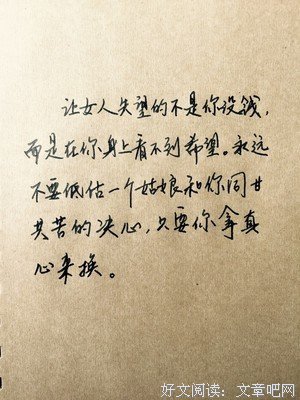 让女人失望的不是你没钱，
而是在你身上看不到希望。永远
不要低估一个姑娘和你同甘
共苦的决心，只要你拿真
心来换。
好文阅读：文章吧网